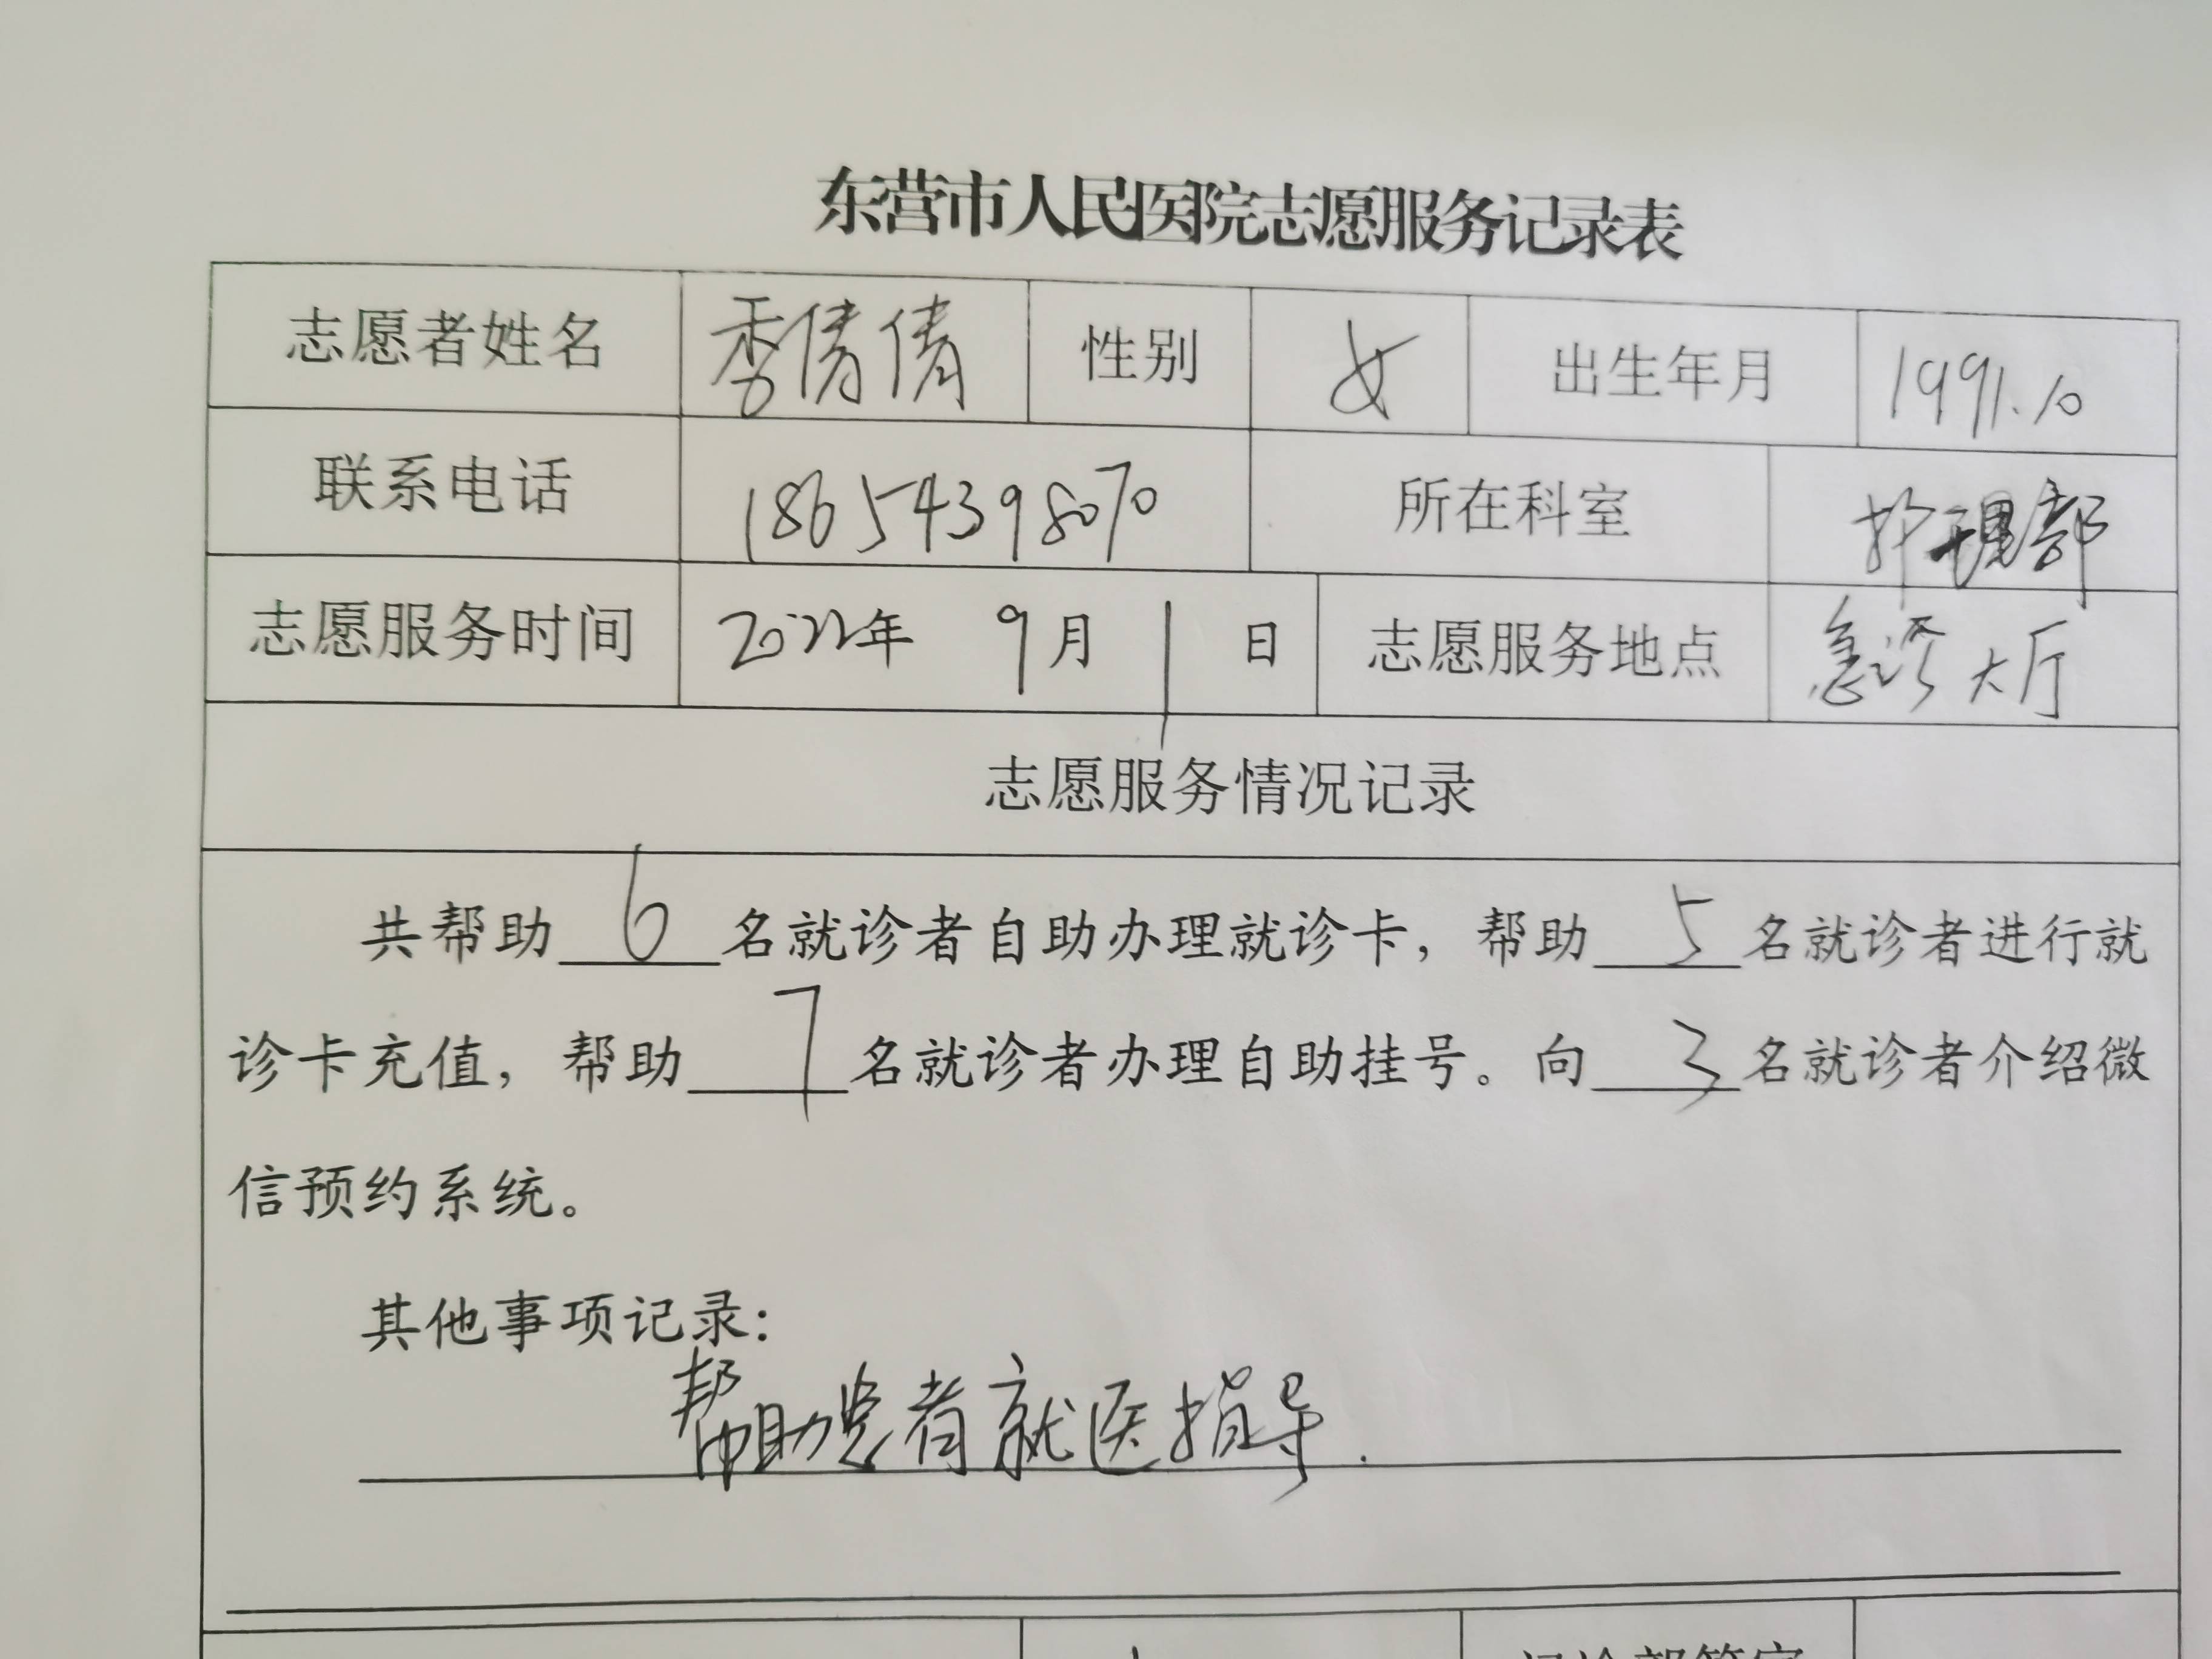 东营市人民医院志愿服务记录表
志愿者姓名 季倩倩 性别 女 出生年月 1991.10
联系电话 18654398070 所在科室 护理部
志愿服务时间 2022年 9月 1日 志愿服务地点 急诊大厅
志愿服务情况记录
共帮助6名就诊者自助办理就诊卡，帮助5名就诊者进行就
诊卡充值，帮助7名就诊者办理自助挂号。向3名就诊者介绍微
信预约系统。
其他事项记录：
帮助患者就医指导.